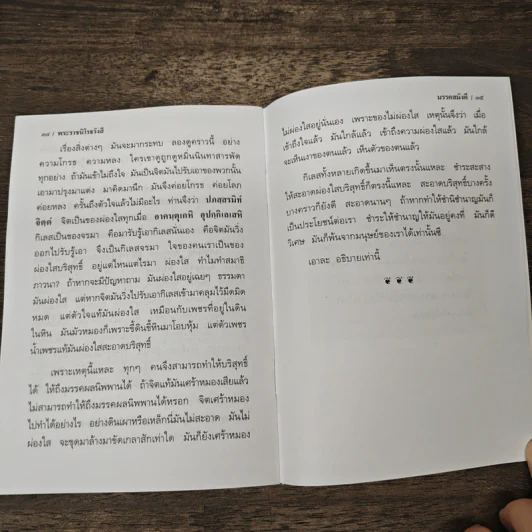 ๑๔ / พระราชนิโรธรังสี
เรื่องสิ่งต่างๆ มันจะมากระทบ ลองดูคราวนี้ อย่าง
ความโกรธ ความหลง ใครเขาดูถูกดูหมิ่นนินทาสารพัด
ทุกอย่าง ถ้ามันเข้าไม่ถึงใจ มันเป็นจิตมันไปรับเอาของพวกนั้น
เอามาปรุงมาแต่ง มาคิดมานึก มันจึงค่อยโกรธ ค่อยโลภ
ค่อยหลง ครั้นถึงตัวใจแล้วไม่มีอะไร ท่านจึงว่า ปภสฺสรมิทํ
จิตฺตํ จิตเป็นของผ่องใสทุกเมื่อ อาคนฺตุเกหิ อุปกฺกิเลเสหิ
กิเลสเป็นของจรมา คือมารับรู้เอากิเลสนั่นเอง คือจิตมันวิ่ง
ออกไปรับรู้เอา จึงเป็นกิเลสจรมา ใจของคนเราเป็นของ
ผ่องใสบริสุทธิ์ อยู่แต่ไหนแต่ไรมา ผ่องใส ทำไมทำสมาธิ
ภาวนา? ถ้าหากจะมีปัญหาถาม มันผ่องใสอยู่เฉยๆ ธรรมดา
มันผ่องใส แต่หากจิตมันวิ่งไปรับเอากิเลสเข้ามาคลุมไว้มืดมิด
หมด แต่ตัวใจแท้มันผ่องใส เหมือนกับเพชรที่อยู่ในดิน
ในหิน มันมัวหมองก็เพราะขี้ดินขี้หินมาโอบหุ้ม แต่ตัวเพชร
น้ำเพชรแท้มันผ่องใสสะอาดบริสุทธิ์
เพราะเหตุนี้แหละ ทุกๆ คนจึงสามารถทำให้บริสุทธิ์
ได้ ให้ถึงมรรคผลนิพพานได้ ถ้าจิตแท้มันเศร้าหมองเสียแล้ว
ไม่สามารถทำให้ถึงมรรคผลนิพพานได้หรอก จิตเศร้าหมอง
ไปทำได้อย่างไร อย่างดินเผาหรือเหล็กนี่มันไม่สะอาด มันไม่
ผ่องใส จะขุดมาล้างมาขัดเกลาสักเท่าใด มันก็ยังเศร้าหมอง
มรรคสมังคี / ๑๕
ไม่ผ่องใสอยู่นั่นเอง เพราะของไม่ผ่องใส เหตุนั้นจึงว่า เมื่อ
เข้าถึงใจแล้ว มันใกล้แล้ว เข้าถึงความผ่องใสแล้ว มันใกล้
จะเห็นเงาของตนแล้ว เห็นตัวของตนแล้ว
กิเลสทั้งหลายเกิดขึ้นมาเห็นตรงนั้นแหละ ชำระสะสาง
ให้สะอาดผ่องใสบริสุทธิ์ก็ตรงนี้แหละ สะอาดบริสุทธิ์บางครั้ง
บางคราวก็ยังดี สะอาดนานๆ ถ้าหากทำให้ชำนิชำนาญมันก็
เป็นประโยชน์ต่อเรา ชำระให้ชำนาญให้มันอยู่คงที่ มันก็ดี
วิเศษ มันก็พ้นจากมนุษย์ของเราได้เท่านั้นซี
เอาละ อธิบายเท่านี้